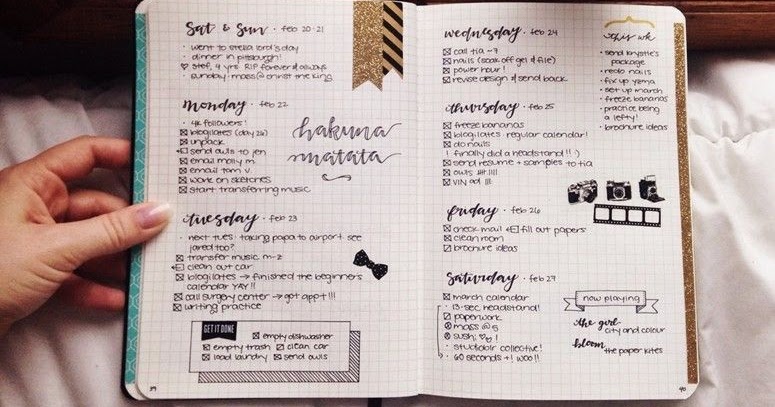 Sat & Sun · feb 20·21
· went to stella lord's day
· dinner in pittsburgh!
♡ stef, 4 yrs RIP forever & always
· sunday mass @ christ the king
monday · feb 22
· 4k followers!
☒ blogilates (day 26)
☒ unpack
send owls to jen
☒ email molly m.
☒ email tom v.
☒ work on sketches
☒ start transferring music
hakuna
matata
tuesday · feb 23
· next tues: taking papa to airport. see
jared too?
☒ transfer music m-z
clean out car
☒ blogilates → finished the beginners
calendar YAY!!
☒ call surgery center → got appt!!!
☒ writing practice
GET IT DONE
☒ empty dishwasher
☒ empty trash ☒ clean car
☒ load laundry ☒ send owls
39
wednesday · feb 24
☒ call tia ~7
☒ nails (soak off gel & file)
☒ power hour!
☒ revise design & send back
thursday · feb 25
☒ freeze bananas
☒ blogilates regular calendar!
☒ do nails
! finally did a headstand!! :)
☒ send resume + samples to tia
☒ owls
☒ VIN ad !!!
friday · feb 26
☒ check mail fill out papers
☒ clean room
brochure ideas
Saturday · feb 27
☒ march calendar
· 13-sec. headstand!
paperwork
mass @ 5
sushi ♡ !
· studiblr collective!
· 60 seconds +! woo!!
this wk
· send krystie's
package
· redo nails
· fix up yzma
· set up march
· freeze bananas
· practice being
a lefty!
· brochure ideas
now playing
the girl
city and colour
bloom
the paper kites
40